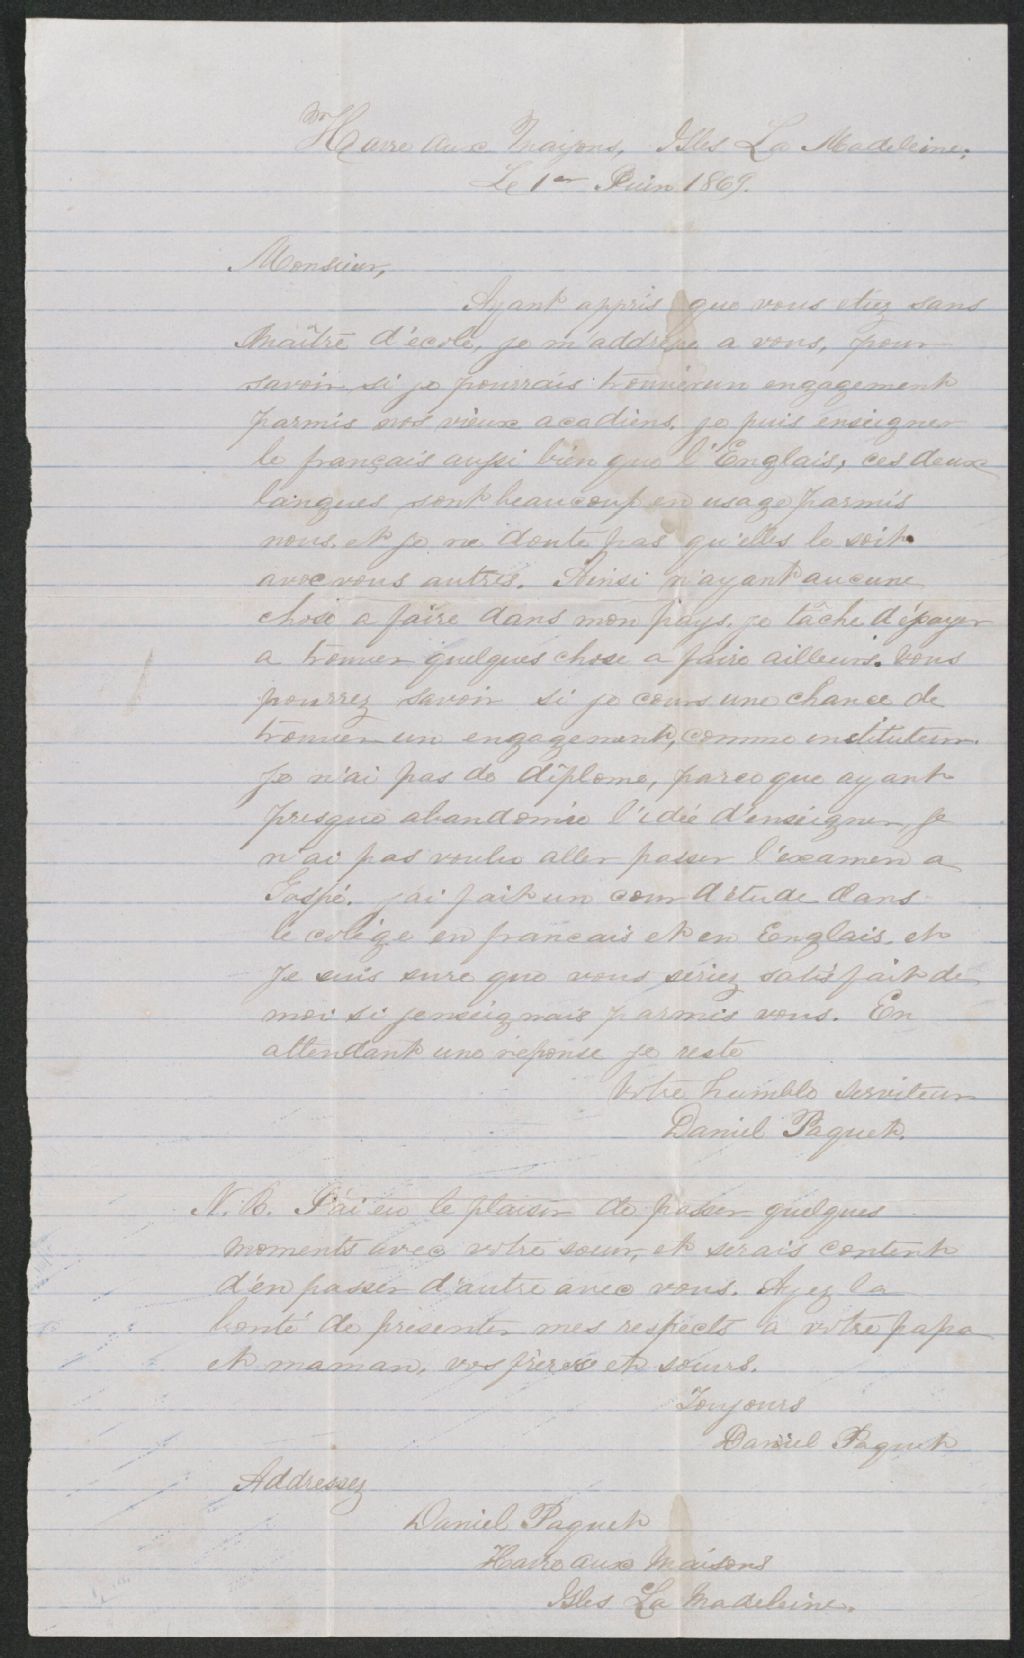 Havre Aux Maisons, Isles La Madeleine,
Le 1er Juin 1869.
Monsieur,
Ayant appris que vous etiez sans
Maître d'école, je m'addresse a vous, pour
savoir si je pourrais trouver un engagement
parmis nos vieux acadiens. je puis enseigner
le français aussi bien que l'Englais, ces deux
langues sont beaucoup en usage parmis
nous, et je ne doute pas qu'elles le soit
avec vous autres. Ainsi n'ayant aucune
chose a faire dans mon pays, je tâche d'éssayer
a trouver quelques chose a faire ailleurs. Vous
pourrez savoir si je cours une chance de
trouver un engagement, comme instituteur.
Je n'ai pas de diplome, parceque ayant
presque abandonnée l'idée d'enseigner, je
n'ai pas voulu aller passer l'examen a
Gaspé. j'ai fait un cour d'étude dans
le colége en francais et en Englais, et
Je suis sure que vous seriez satisfait de
moi si j'enseignais parmis vous. En
attendant une réponse je reste
Votre humble serviteur
Daniel Paquet.
N.B. J'ai eu le plaisir de passer quelques
moments avec votre soeur, et serais content
d'en passer d'autre avec vous. Ayez la
bonté de présenter mes respects a votre papa
et maman, vos frères et soeurs.
Toujours
Daniel Paquet
Addressez
Daniel Paquet
Havre aux Maisons
Isles La Madeleine.